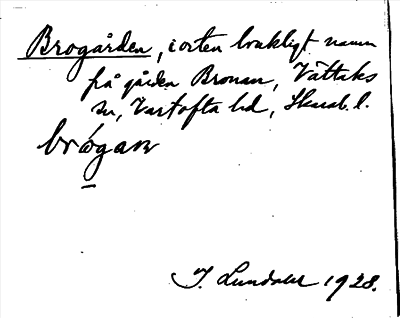 Brogården, i orten brukligt namn
på gården Bronan, Vättaks
sn, Vartofta hd, Skarab. l.
brógan
J. Lundahl 1928.